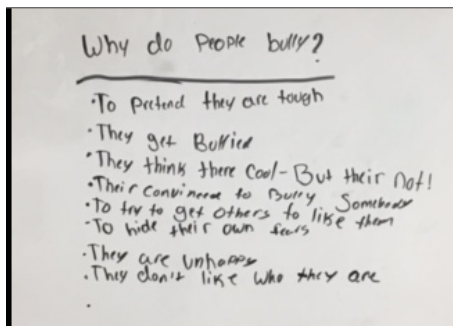 Why do People bully?
·To Pretend they are tough
·They get Bullied
·They think there Cool-But their not!
·Their convinced to Bully Somebody
·To try to get others to like them
·To hide their own fears
·They are unhappy
·They don't like who they are
·